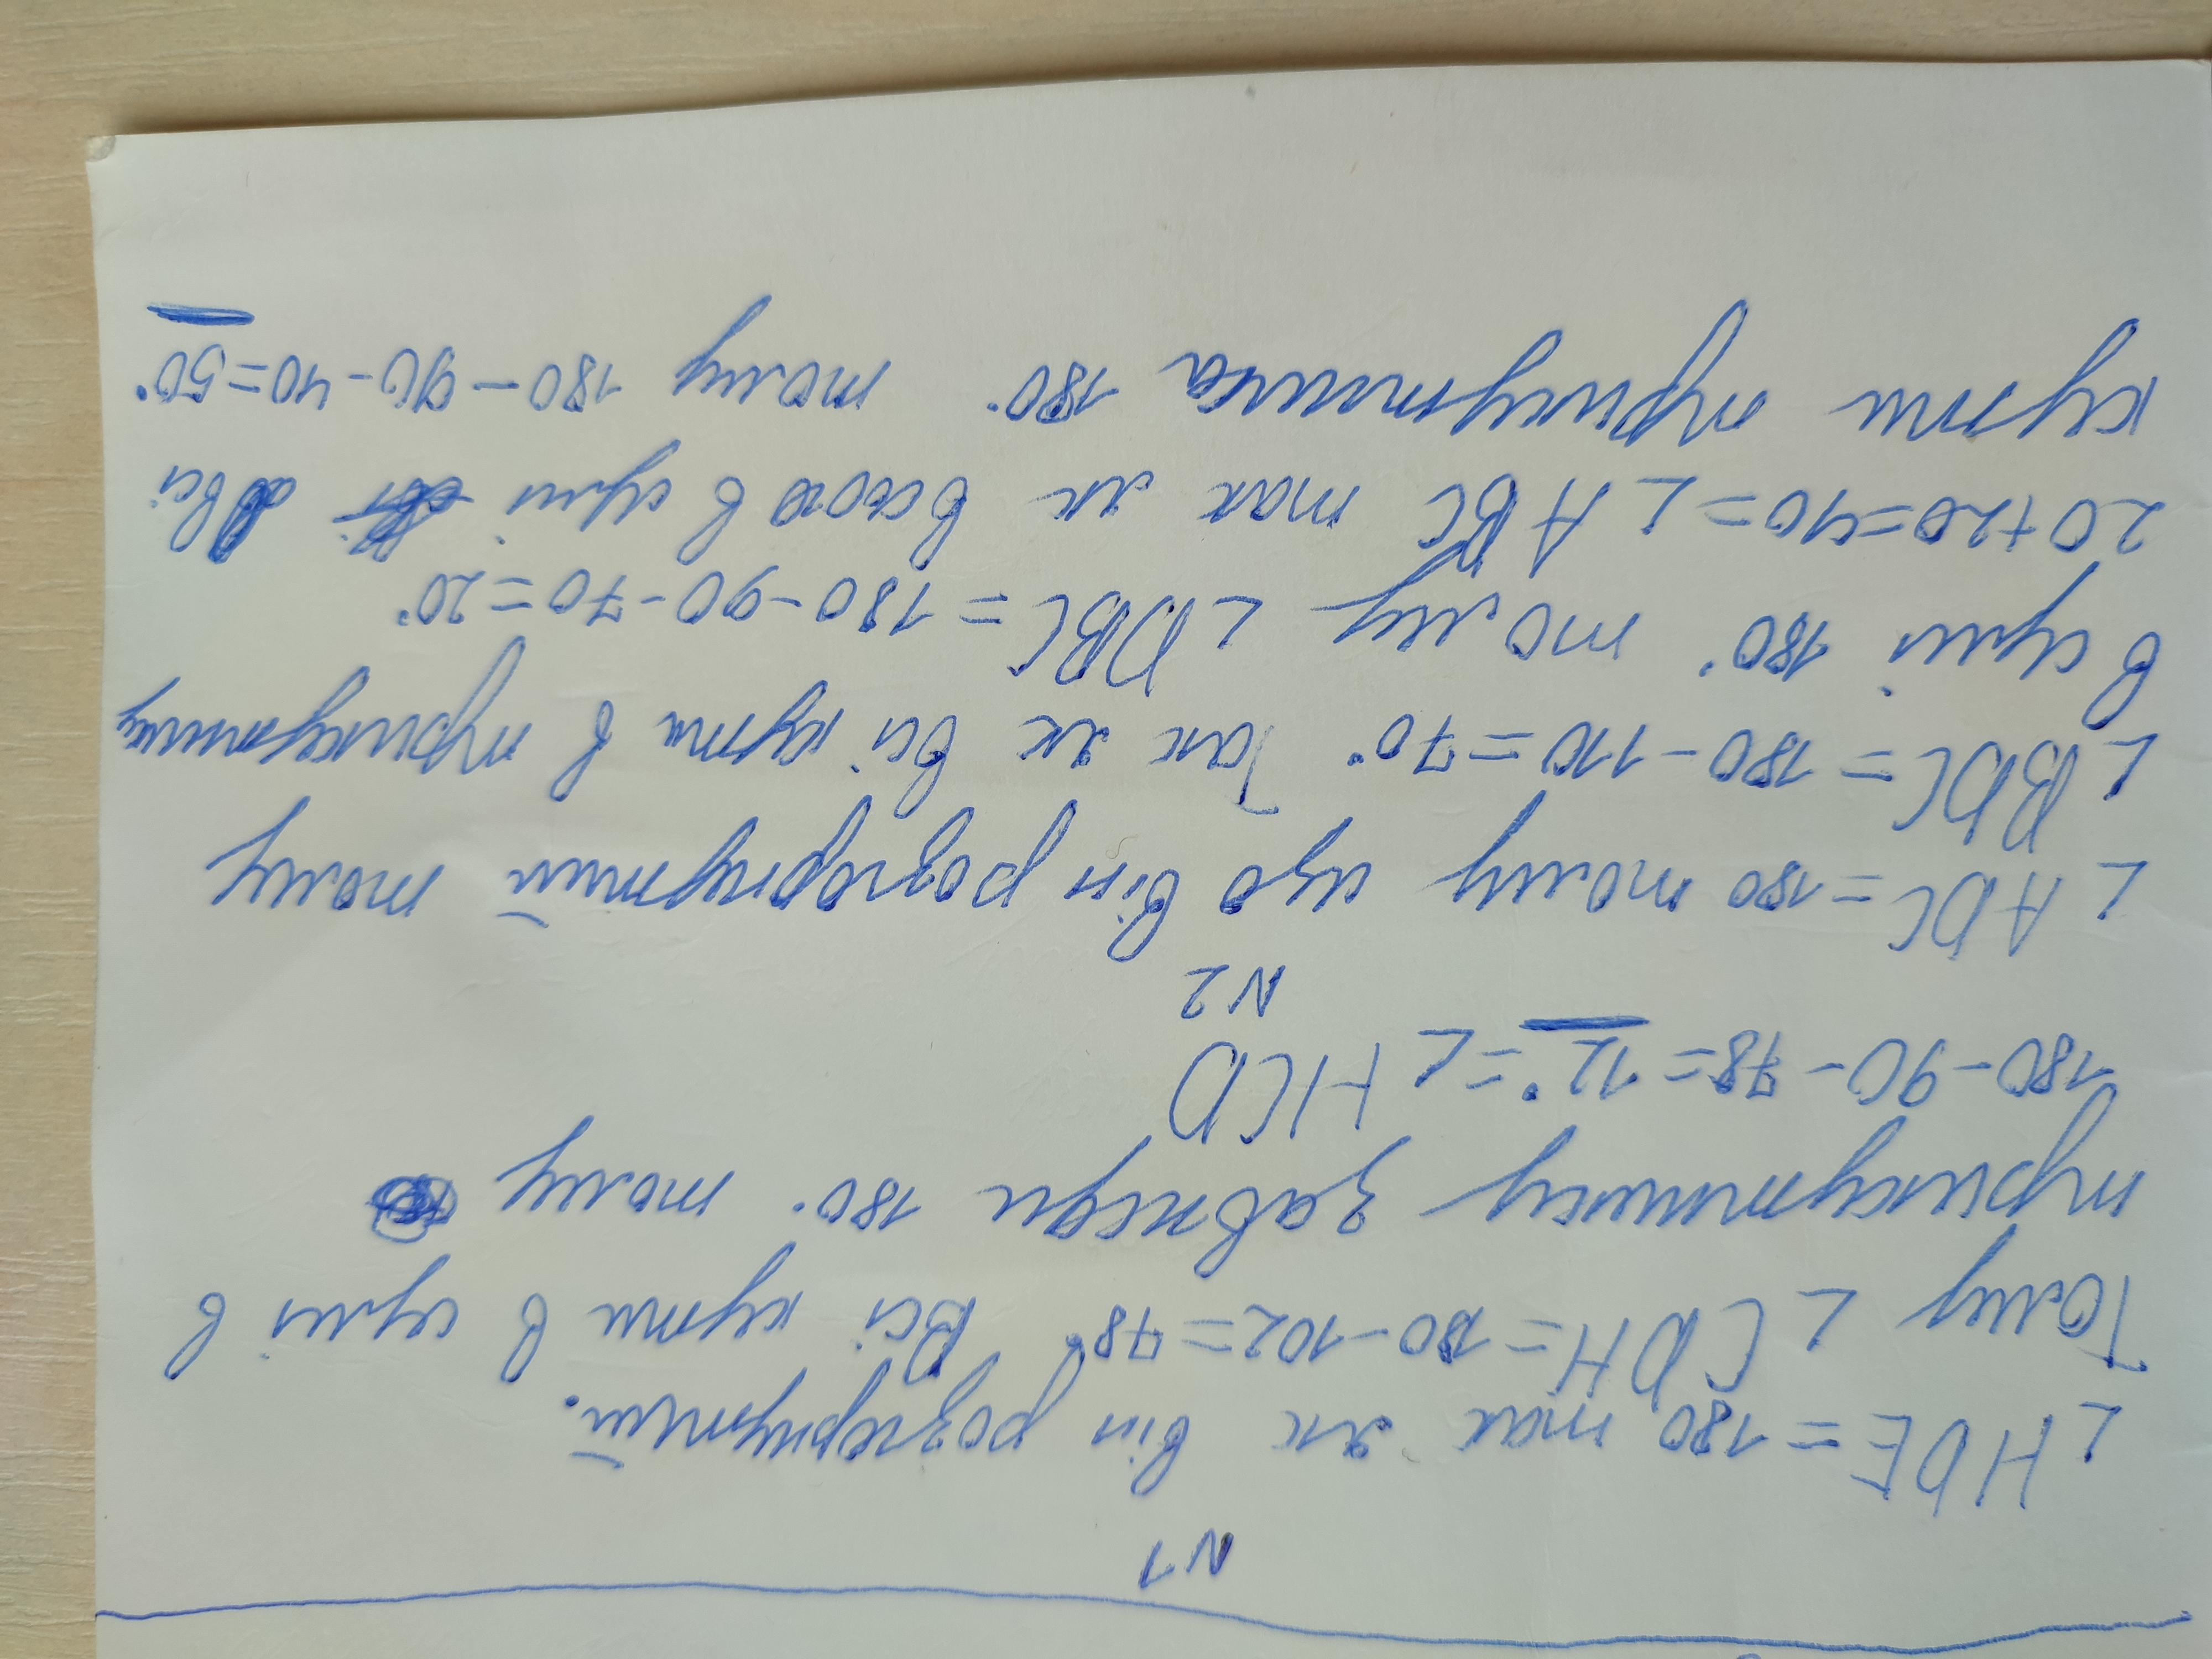 N1
∠HDE = 180 так як він розгорнутий.
Тому ∠CDH = 180-102 = 78° Всі кути в сумі в
трикутнику завжди 180° тому
180-90-78 = 12° = ∠HCD
N2
∠ADC = 180 тому що він розгорнутий тому
∠BDC = 180-110 = 70° Так як всі кути в трикутнику
в сумі 180° тому ∠DBC = 180-90-70 = 20°
20+20=40=∠ABC так як в сумі всі
кути трикутника 180° тому 180-90-40=50°